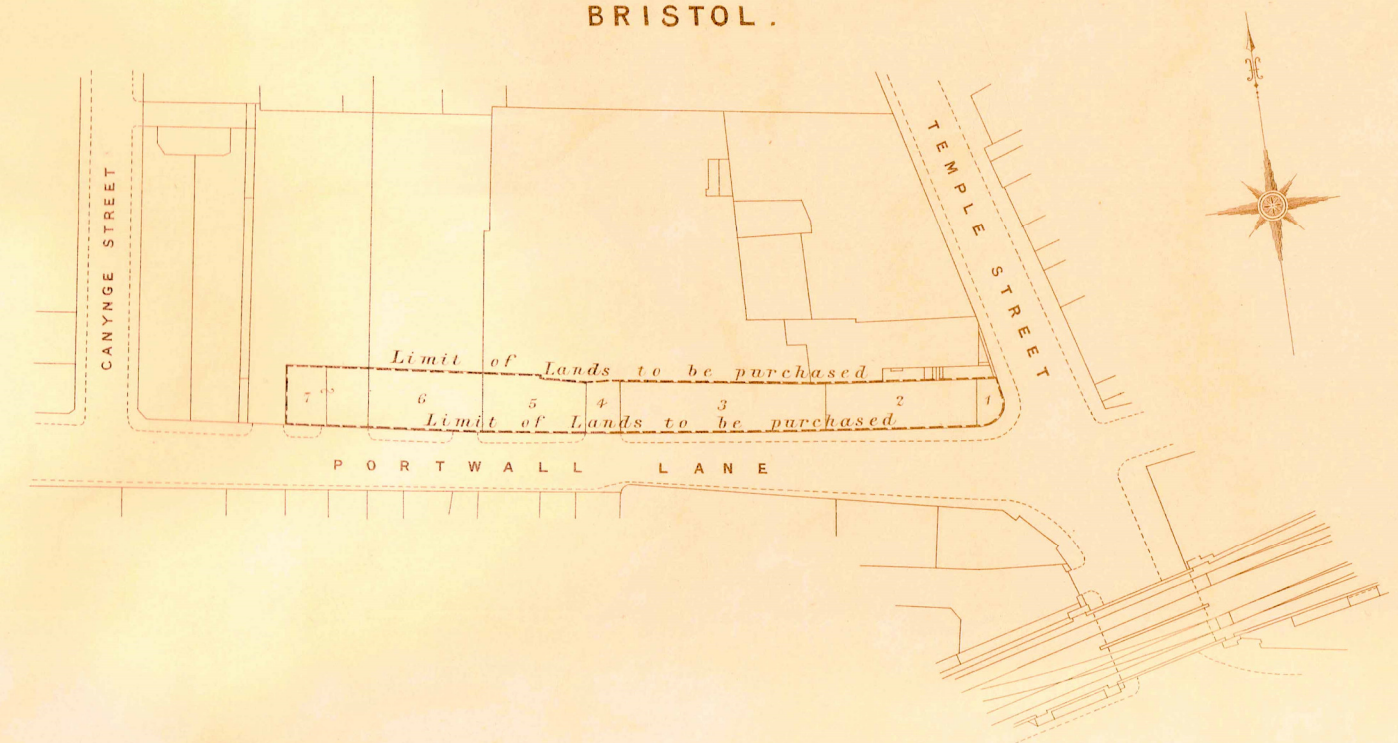 BRISTOL.
TEMPLE STREET
CANYNGE STREET
Limit of Lands to be purchased
7 6 5 4 3 2 1
Limit of Lands to be purchased
PORTWALL LANE